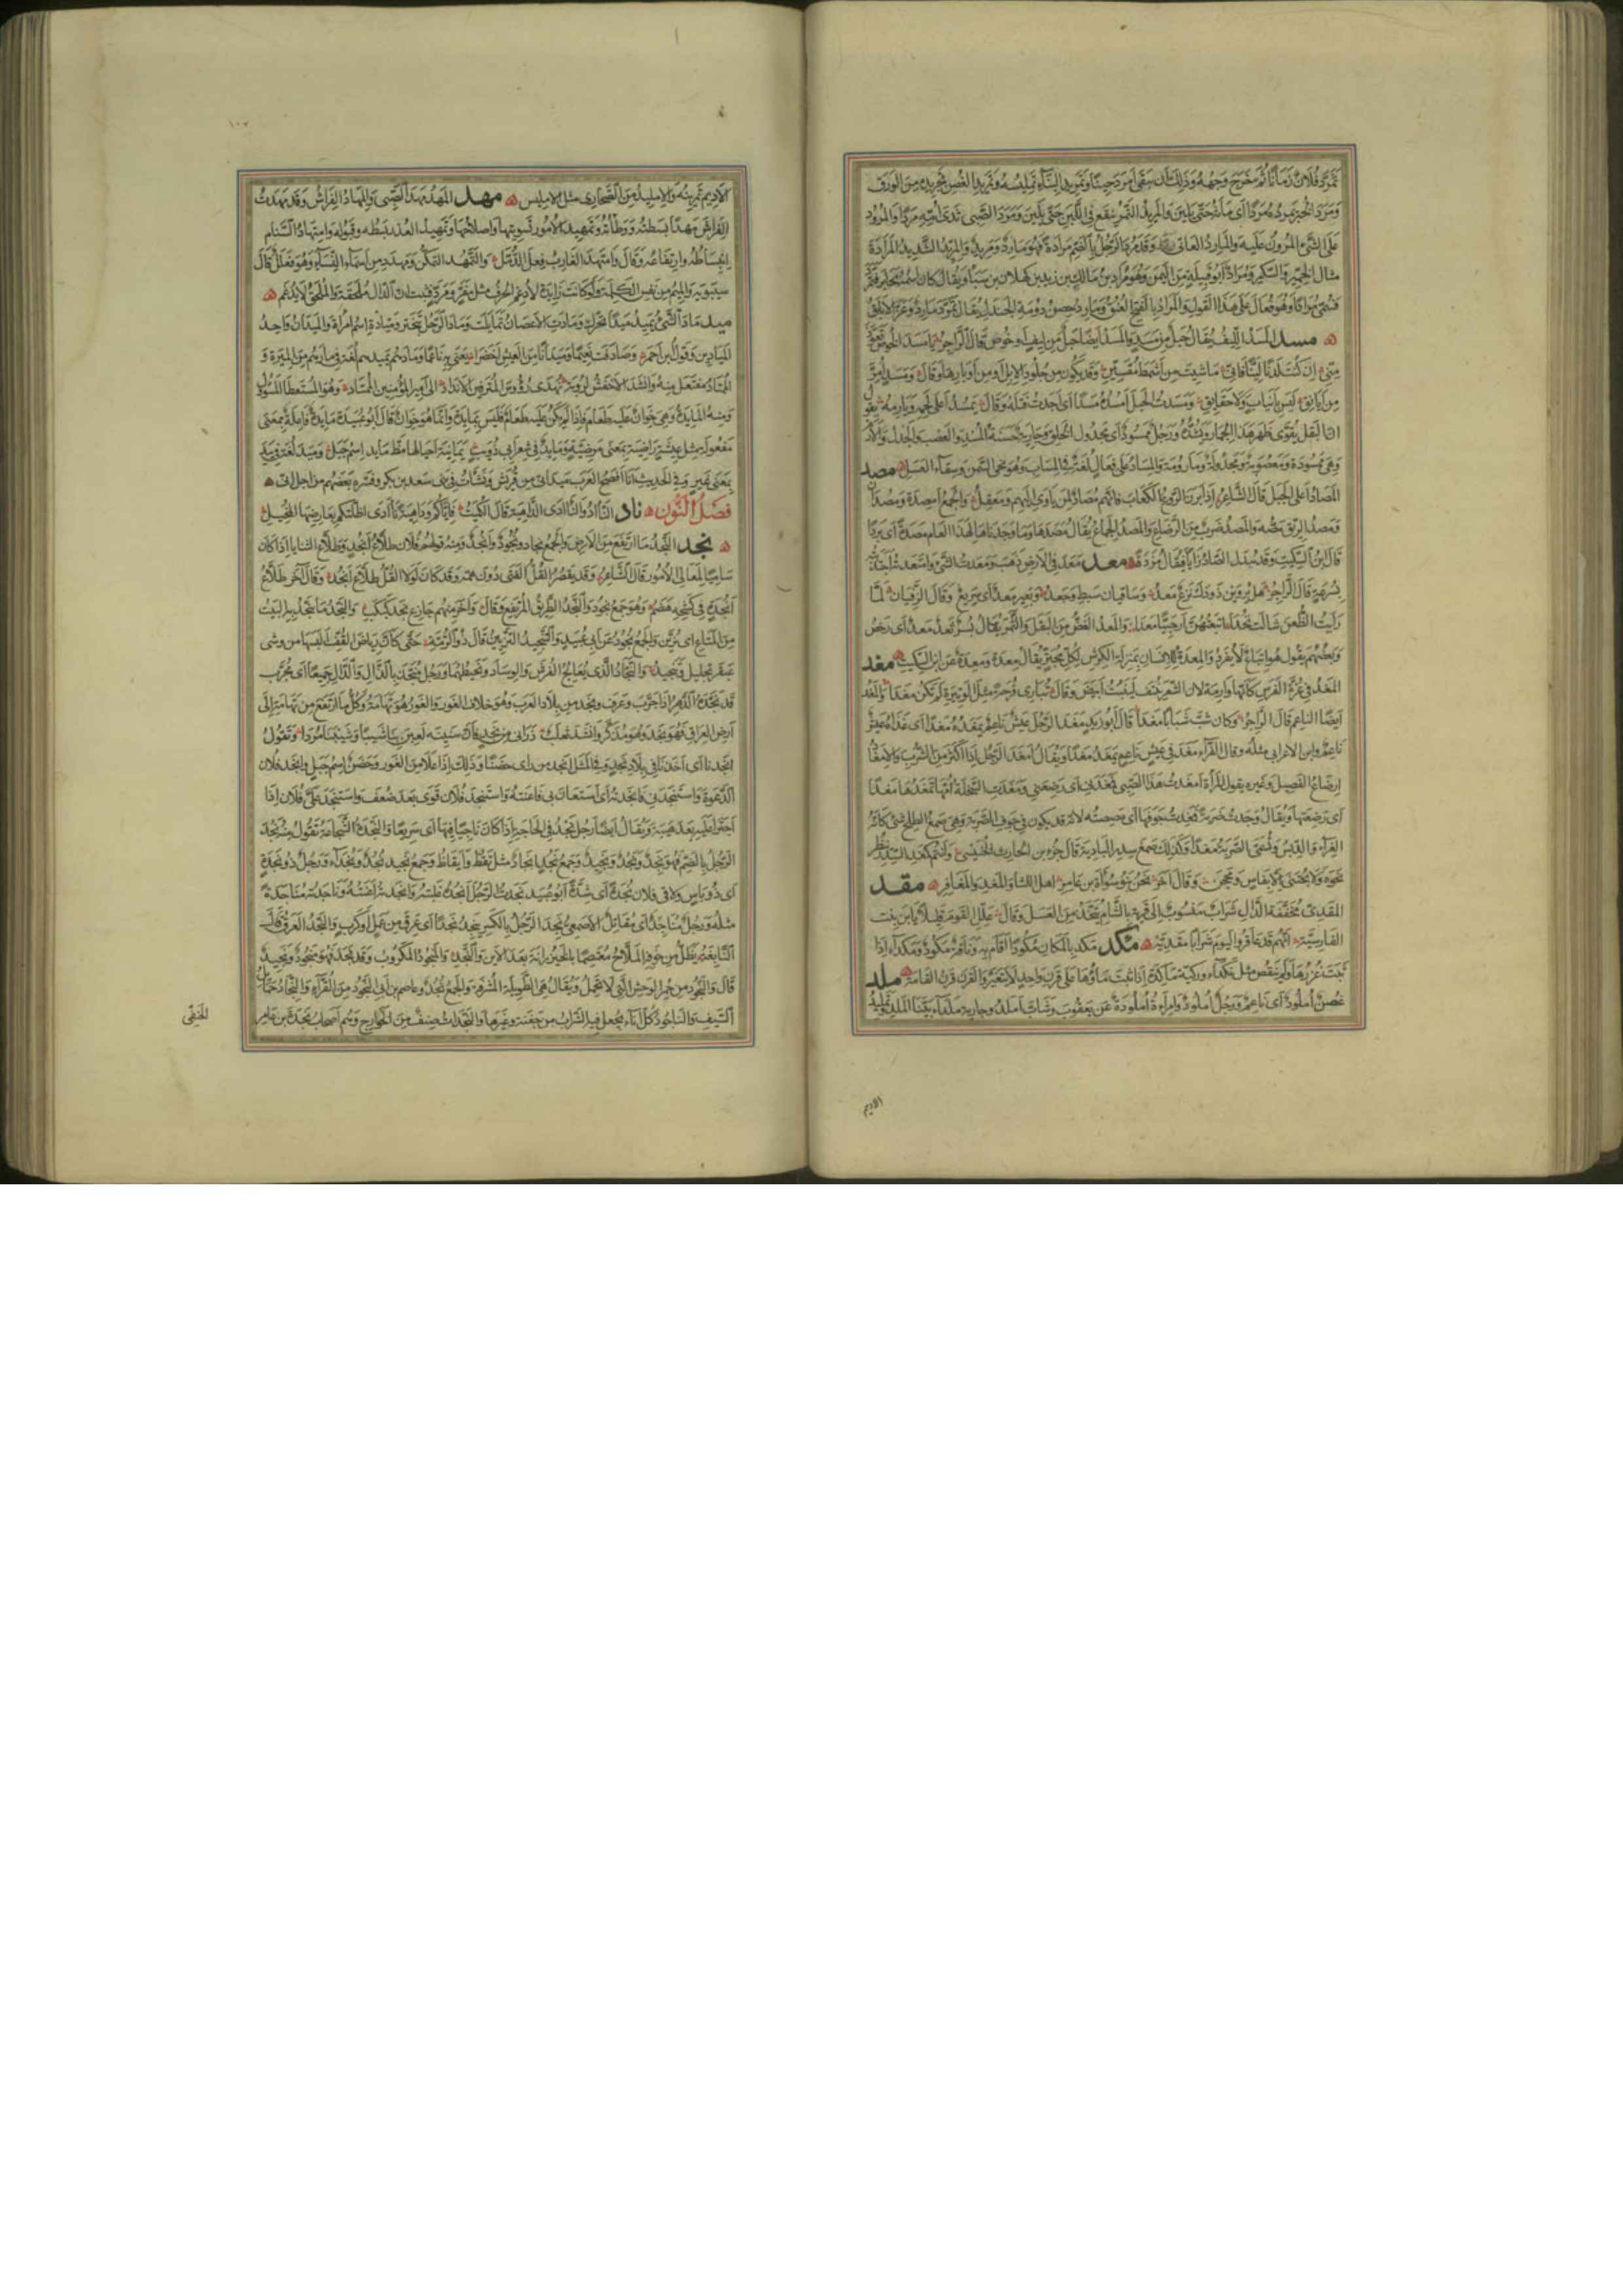 تمرد فلان زمانا ثم خرج وجهه وذلك ان يبقى امرد حينا وتمريد البناء تمليسه وتمريد الغصن تجريده من الورق
ومرد الخبز يمرده مردا اى ماثه حتى يلين والمريد التمر ينقع فى اللبن حتى يلين ومرد الصبى ثدى امه مردا والمرود
على الشئ المرون عليه والمارد العاتى وقد مرد الرجل بالضم مرادة فهو مارد ومريد والمريد الشديد المرادة
مثال الخمير والسكير ومراد ابو قبيلة من اليمن وهو مراد بن مالك بن زيد بن كهلان بن سبا ويقال كان اسمه يحابر فتمرد
فسمى مرادا وهو فعال على هذا القول والمراد بالفتح العنق ومارد حصن دومة الجندل يقال تمرد مارد وعز الابلق
مسد المسد الليف يقال حبل من مسد والمسد ايضا حبل من ليف او خوص قال الراجز يا مسد الخوص تعوذ
منى ان كنت لدنا لينا فانى ما شئت من اشمط مقسئن وقد يكون من جلود الابل او من اوبارها وقال ومسد امر
من ايانق ليس بانياب ولا حقائق ومسدت الحبل امسده مسدا اى اجدت فتله وقال يمسد اعلى لحمه ويارمه يقول
ان البقل يقوى ظهر هذا الحمار ويشده ورجل ممسود اى مجدول الخلق وجارية حسنة المسد والعصب والجدل والارم
وهى ممسودة ومعصوبة ومجدولة ومارومة والمساد على فعال لغة فى المساب وهو نحى السمن وسقاء العسل مصد
المصاد اعلى الجبل قال الشاعر اذا ابرز الروع الكعاب فانهم مصاد لمن ياوى اليهم ومعقل والجمع امصدة ومصدان
ومصد الريق مصه والمصد ضرب من الرضاع والمصد الجماع يقال مصدها وما وجدنا لهذا العام مصدة اى بردا
قال ابن السكيت وقد تبدل الصاد زايا فيقال مزدة معد معد فى الارض ذهب ومعدت الشئ وامتعدته اجتذبته
بسرعة قال الراجز هل يروين ذودك نزع معد وساقيان سبط وجعد وبعير معد اى سريع وقال الزفيان لما
رايت الظعن شالت تحدا اتبعتهن ارحبيا معدا والمعد الغض من البقل والثمر يقال بسر ثعد معد اى رخص
وبعضهم يقول هو اتباع لا يفرد والمعدة للانسان بمنزلة الكرش لكل مجتر يقال معدة ومعدة عن ابن السكيت مغد
المغد فى غرة الفرس كانها وارمة لان الشعر ينتف لينبت ابيض وقال تبارى قرحة مثل الوتيرة لم تكن مغدا والمغد
ايضا الناعم قال الراجز وكان شب شبابا مغدا قال ابو زيد مغد الرجل عيش ناعم يمغده مغدا اى غذاه عيش
ناعم وابن الاعرابى مثله وقال الفراء مغد فى عيش ناعم يمغد مغدا ويقال امغد الرجل اذا اكثر من الشرب والامغاد
ارضاع الفصيل وغيره يقول المراة امغدت هذا الصبى فمغدنى اى رضعنى ومغدت السخلة امها تمغدها مغدا
اى رضعتها ويقال وجدت ضربة فمغدت جوفها اى مصصته لانه قد يكون فى جوف الضربة وهى صمغ الطلح شئ كانه
الغراء والدبس وتسمى الضربة مغدا وكذلك صمغ سدر البادية قال جزء بن الحارث وانتم كمغد السدر ينظر
نحوه ولا يجتنى الا بفاس ومحجن وقال اخر نحن بنو سواة بن عامر اهل اللثا والمغد والمغافر مقد
المقدى مخففة الدال شراب منسوب الى قرية بالشام يتخذ من العسل وقال علل القوم قليلا يا ابن بنت
الفارسية انهم قد عاقروا اليوم شرابا مقدية مكد مكد بالمكان مكودا اقام به وناقة مكود ومكداء اذا
ثبت غزرها ولم ينقص مثل نكداء وركية ماكدة اذا ثبت ماؤها على قرن واحد لا يتغير والقرن قرن القامة ملد
غصن املود اى ناعم ورجل املود وامراة املودة عن يعقوب وشاب املد وجارية ملداء بينا الملد وتمليد
الاديم
١٠٧
الاديم تمرينه والامليد من الصحارى مثل الامليس مهد المهد مهد الصبى والمهاد الفراش وقد مهدت
الفراش مهدا بسطته ووطاته وتمهيد الامور تسويتها واصلاحها وتمهيد العذر بسطه وقبوله وامتهاد السنام
انبساطه وارتفاعه وقال وامتهد الغارب فعل الدمل والتمهد التمكن ومهدد من اسماء النساء وهو فعلل قال
سيبويه والميم من نفس الكلمة ولو كانت زايدة لادغم الحرف مثل مفر ومرد فثبت ان الدال ملحقة والملحق لا يدغم
ميد ماد الشئ يميد ميدا تحرك ومادت الاغصان تمايلت وماد الرجل تبختر وميادة اسم امراة والميدان واحد
الميادين وقول ابن احمر وصادفت نعيما وميدانا من العيش اخضرا يعنى به ناعما ومادهم يميدهم لغة فى مارهم من الميرة و
الممتاد مفتعل منه وانشد الاخفش لرؤبة تهدى رؤوس المترفين الانداد الى امير المؤمنين الممتاد وهو المستعطى المسؤل
ومنه المايدة وهى خوان عليه طعام فاذا لم يكن عليه طعام فليس بمايدة وانما هو خوان قال ابو عبيدة مايدة فاعلة بمعنى
مفعولة مثل عيشة راضية بمعنى مرضية ومايد فى شعر ابى ذؤيب يمانية احيا لها مظ مايد اسم جبل وميد لغة فى بيد
بمعنى غير وفى الحديث انا افصح العرب ميد انى من قريش ونشات فى بنى سعد بن بكر وفسره بعضهم من اجل انى
فصل النون ناد الناد والناادى الداهية قال الكميت فاياكم وداهية ناادى اظلتكم بعارضها المخيل
نجد النجد ما ارتفع من الارض والجمع نجاد ونجود وانجد ومنه قولهم فلان طلاع انجد وطلاع الثنايا اذا كان
ساميا لمعالى الامور قال الشاعر وقد يقصر القل الفتى دون همه وقد كان لولا القل طلاع انجد وقال اخر طلاع
انجدة فى كشحه هضم وهو جمع نجود والنجد الطريق المرتفع وقال واخر منهم جازع نجد كبكب والنجد ما ينجد به البيت
من المتاع اى يزين والجمع نجود عن ابى عبيد والتنجيد التزيين قال ذو الرمة حتى كان رياض القف البسها من وشى
عبقر تجليل وتنجيد والنجاد الذى يعالج الفرش والوساد ويخيطهما ورجل منجد بالدال والذال جميعا اى مجرب
قد نجده الدهر اذا جرب وعرف ونجد من بلاد العرب وهو خلاف الغور والغور هو تهامة وكل ما ارتفع من تهامة الى
ارض العراق فهو نجد وهو مذكر وانشد ثعلب ذرانى من نجد فان سنينه لعبن بنا شيبا وشيبننا مردا وتقول
انجدنا اى اخذنا فى بلاد نجد وفى المثل انجد من راى حضنا وذلك اذا علا من الغور وحضن اسم جبل وانجد فلان
الدعوة واستنجدنى فانجدته اى استعان بى فاعنته واستنجد فلان قوى بعد ضعف واستنجد على فلان اذا
اجترا عليه بعد هيبة ويقال ايضا رجل نجد فى الحاجة اذا كان ناجيا فيها اى سريعا والنجدة الشجاعة تقول منه نجد
الرجل بالضم فهو نجد ونجد ونجيد وجمع نجد انجاد مثل يقظ وايقاظ وجمع نجيد نجد ونجداء ورجل ذو نجدة
اى ذو باس ولاقى فلان نجدة اى شدة ابو عبيد نجدت الرجل انجده غلبته وانجدته اعنته وناجدته مناجدة
مثله ورجل مناجد اى مقاتل الاصمعى نجد الرجل بالكسر ينجد نجدا اى عرق من عمل او كرب والنجد العرق قال
النابغة يظل من خوفه الملاح معتصما بالخيزرانة بعد الاين والنجد والمنجود المكروب وقد نجد فهو منجود ونجيد
قال والنجود من حمر الوحش التى لا تحمل ويقال هى الطويلة المشرفة والجمع نجد وعاصم بن ابى النجود من القراء والنجاد حمايل
السيف والناجود كل اناء يجعل فيه الشراب من جفنة وغيرها والنجدات صنف من الخوارج وهم اصحاب نجدة بن عامر
الحنفى